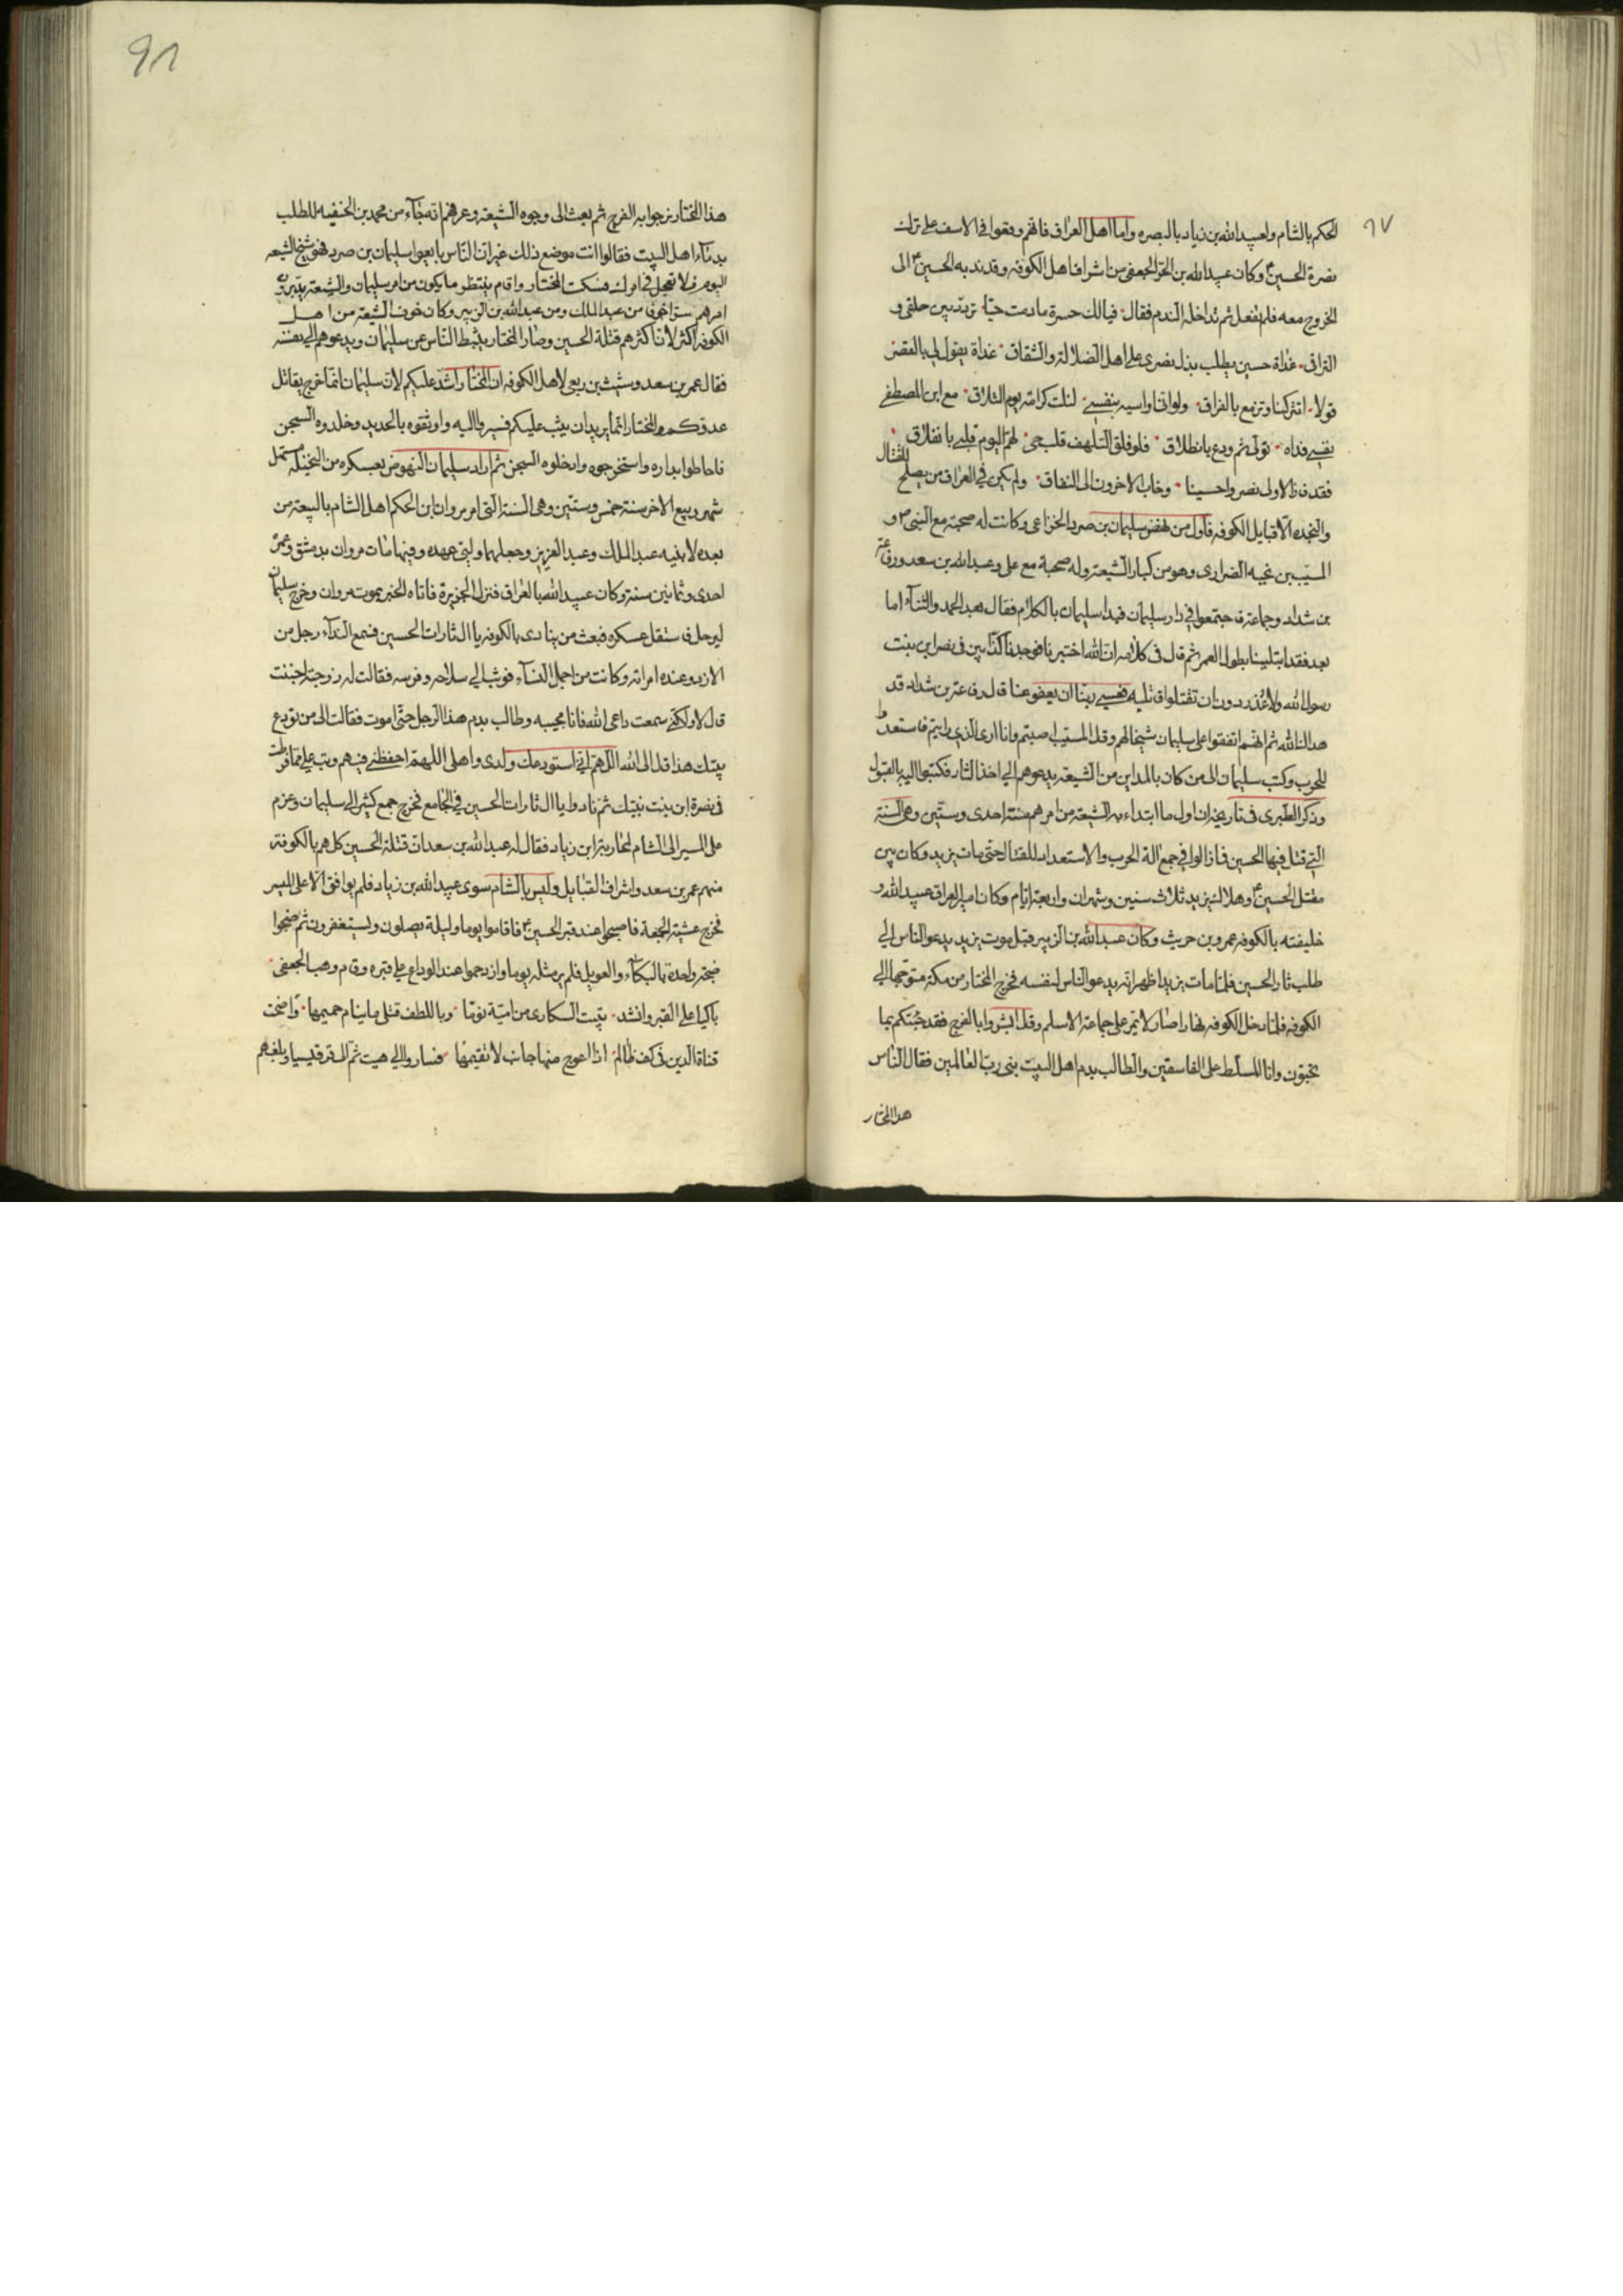 ٩٧
الحكم بالشام ولعبيد الله بن زياد بالبصره واما اهل العراق فانهم وقعوا في الاسف على ترك
نصرة الحسين ع وكان عبيد الله بن الحر الجعفي من اشراف اهل الكوفه وقد ندبه الحسين ع الى
الخروج معه فلم يفعل ثم تداخله الندم فقال فيالك حسرة مادمت حيا تردد بين حلقي و
التراق غداة حسين يطلب بذل نصري على اهل الضلالة والشقاق غداة يقول لي بالقصر
قولا اتتركنا وتزمع بالفراق ولو اني اواسيه بنفسي لنلت كرامة يوم التلاق مع ابن المصطفى
نفسي فداه تولى ثم ودع بانطلاق فلو فلق التلهف قلب حي لهم اليوم قلبي بانفلاق
فقد فاز الاولى نصروا حسينا وخاب الاخرون الى النفاق ولم يكن في العراق من يصلح للقتال
والنجده الا قبايل الكوفه فاول من نهض سليمان بن صرد الخزاعي وكانت له صحبة مع النبي ص و
المسيب بن نجبه الفزاري وهو من كبار الشيعة وله صحبة مع علي وعبد الله بن سعد ورفاعة
بن شداد وجماعة فاجتمعوا في دار سليمان فبدا سليمان بالكلام فقال بعد الحمد والثناء اما
بعد فقد ابتلينا بطول العمر ثم قال في كلامه ان الله اختبرنا فوجدنا كذابين في نصر ابن بنت
رسول الله ولا عذر دون ان تقتلوا قاتليه فعسى ربنا ان يعفو عنا قال رفاعة بن شداد قد
هدانا الله ثم انهم اتفقوا على سليمان شيخا لهم وقال المسيب اصبتم وانا ارى الذي رايتم فاستعدوا
للحرب وكتب سليمان الى من كان بالمداين من الشيعة يدعوهم الى اخذ الثار فكتبوا اليه بالقبول
وذكر الطبري في تاريخه ان اول ما ابتداء به الشيعة من امرهم سنة احدى وستين وهي السنة
التي قتل فيها الحسين فما زالوا في جمع الة الحرب والاستعداد للقتال حتى مات يزيد وكان بين
مقتل الحسين ع وهلاك يزيد ثلاث سنين وشهران واربعة ايام وكان امير العراق عبيد الله و
خليفته بالكوفه عمرو بن حريث وكان عبد الله بن الزبير قبل موت يزيد يدعو الناس الى
طلب ثار الحسين فلما مات يزيد اظهر انه يدعو الناس لنفسه فخرج المختار من مكة متوجها الى
الكوفه فلما دخل الكوفه نهارا صار لا يمر على جماعة الا سلم وقال ابشروا بالفرج فقد جئتكم بما
تحبون وانا المسلط على الفاسقين والطالب بدم اهل البيت بني رب العالمين فقال الناس
هذا المختار
٩٨
هذا المختار نرجو به الفرج ثم بعث الى وجوه الشيعة وعرفهم انه جاء من محمد بن الحنفيه للطلب
بدماء اهل البيت فقالوا انت موضع ذلك غير ان الناس بايعوا سليمان بن صرد فهو شيخ الشيعه
اليوم فلا تعجل في امرك فسكت المختار واقام ينتظر ما يكون من امر سليمان والشيعة يدبرون
امرهم سرا خوفا من عبد الملك ومن عبد الله بن الزبير وكان خوف الشيعة من اهل
الكوفه اكثر لان اكثرهم قتلة الحسين وصار المختار يثبط الناس عن سليمان ويدعوهم الى نفسه
فقال عمر بن سعد وشبث بن ربعي لاهل الكوفه ان المختار اشد عليكم لان سليمان انما خرج يقاتل
عدوكم والمختار انما يريد ان يثب عليكم فسيروا اليه واوثقوه بالحديد وخلدوه السجن
فاحاطوا بداره واستخرجوه وادخلوه السجن ثم اراد سليمان النهوض بعسكره من النخيله مستهل
شهر ربيع الاخر سنة خمس وستين وهي السنة التي امر مروان بن الحكم اهل الشام بالبيعة من
بعده لابنيه عبد الملك وعبد العزيز وجعلهما وليي عهده وفيها مات مروان بدمشق وعمره
احدى وثمانين سنة وكان عبيد الله بالعراق فنزل الجزيرة فاتاه الخبر بموت مروان وخرج سليمان
ليرحل فاستقل عسكره فبعث من ينادي بالكوفه يا ال ثارات الحسين فسمع النداء رجل من
الازد وعنده امراته وكانت من اجمل النساء فوثب الى سلاحه وفرسه فقالت له زوجته اجننت
قال لا ولكني سمعت داعي الله فانا مجيبه وطالب بدم هذا الرجل حتى اموت فقالت الى من تودع
بيتك هذا قال الى الله اللهم اني استودعك ولدي واهلي اللهم احفظني فيهم وتب علي مما فرطت
في نصرة ابن بنت نبيك ثم نادوا يا ال ثارات الحسين في الجامع فخرج جمع كثير الى سليمان وعزم
على المسير الى الشام لمحاربة ابن زياد فقال له عبد الله بن سعد ان قتلة الحسين كلهم بالكوفة
منهم عمر بن سعد واشراف القبايل وليس بالشام سوى عبيد الله بن زياد فلم يوافق الا على المسير
فخرج عشية الجمعة فاصبحوا عند قبر الحسين ع فاقاموا يوما وليلة يصلون ويستغفرون ثم ضجوا
ضجة واحدة بالبكاء والعويل فلم ير مثله يوما وازدحموا عند الوداع على قبره وقام وهب الجعفي
باكيا على القبر وانشد تبيت السكارى من امية نوما وبالطف قتلى ما ينام حميمها واضحت
قناة الدين في كف ظالم اذا اعوج منها جانب لا تقيمها فساروا الى هيت ثم الى قرقيسيا وبلغهم